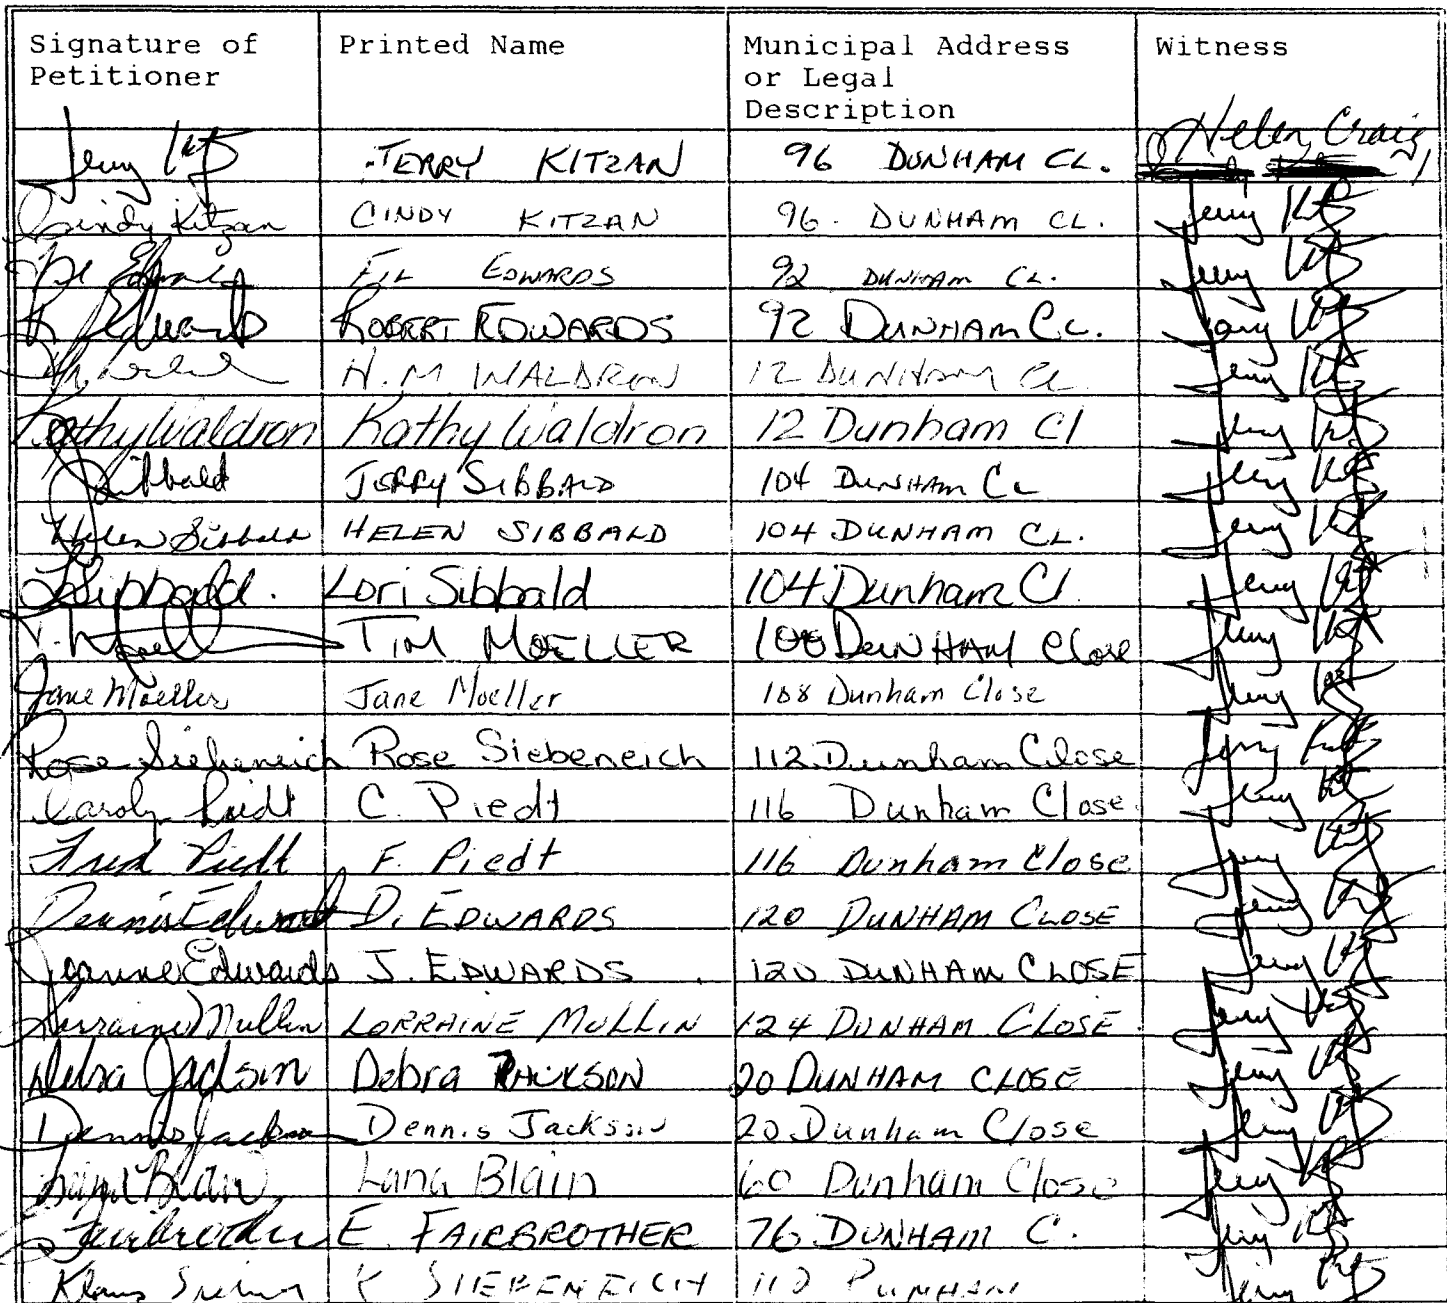 Signature of Petitioner Printed Name Municipal Address or Legal Description Witness
Jerry Kitz JERRY KITZAN 96 DUNHAM CL. Helen Craig
Cindy Kitzan CINDY KITZAN 96. DUNHAM CL. Jerry Kitz
Edwards FIL EDWARDS 92 DUNHAM CL. Jerry Kitz
R Edwards ROBERT EDWARDS 92 DUNHAM CL. Jerry Kitz
H.M WALDRON 12 DUNHAM CL Jerry Kitz
Kathy Waldron Kathy Waldron 12 Dunham Cl Jerry Kitz
J Sibbald JERRY SIBBALD 104 DUNHAM CL Jerry Kitz
Helen Sibbald HELEN SIBBALD 104 DUNHAM CL. Jerry Kitz
L Sibbald. Lori Sibbald 104 Dunham Cl. Jerry Kitz
T. Moeller TIM MOELLER DUNHAM Close Jerry Kitz
Jane Moeller Jane Moeller 108 Dunham Close Jerry Kitz
Rose Siebeneich Rose Siebeneich 112 Dunham Close Jerry Kitz
Carolyn Piedt C. Piedt 116 Dunham Close Jerry Kitz
Fred Piedt F. Piedt 116 Dunham Close Jerry Kitz
Dennis Edwards D. EDWARDS 120 DUNHAM CLOSE Jerry Kitz
Jeanne Edwards J. EDWARDS 120 DUNHAM CLOSE Jerry Kitz
Lorraine Mullin LORRAINE MULLIN 124 DUNHAM CLOSE Jerry Kitz
Debra Jackson Debra JACKSON 20 DUNHAM CLOSE Jerry Kitz
Dennis Jackson Dennis Jackson 20 Dunham Close Jerry Kitz
Lana Blain Lana Blain 60 Dunham Close Jerry Kitz
Fairbrother E. FAIRBROTHER 76 DUNHAM C. Jerry Kitz
Klaus K SIEBENEICH 112 DUNHAM Jerry Kitz